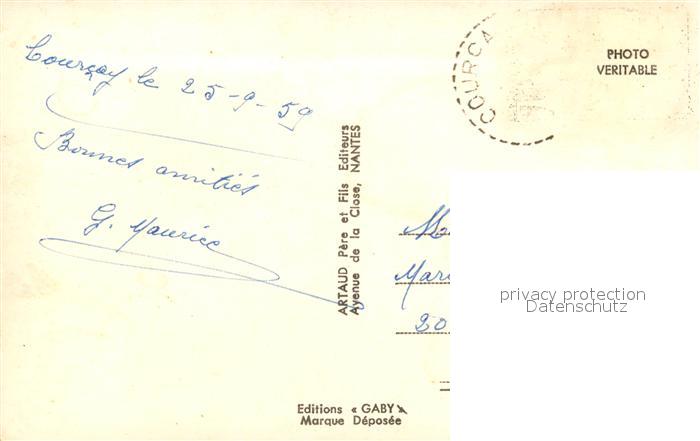 Courçay le 25-9-59
Bonnes amitiés
G. Maurice
ARTAUD Père et Fils Editeurs
Avenue de la Close, NANTES
Editions « GABY »
Marque Déposée
COURCA
PHOTO
VERITABLE
M
Mari
20
privacy protection
Datenschutz